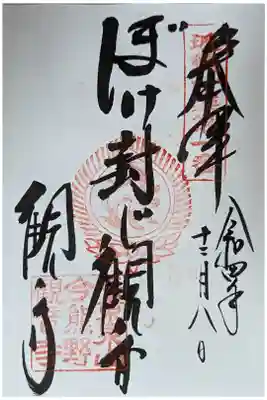 奉拝
令和四年
十二月八日
ぼけ封じ観音
今熊野
観音寺